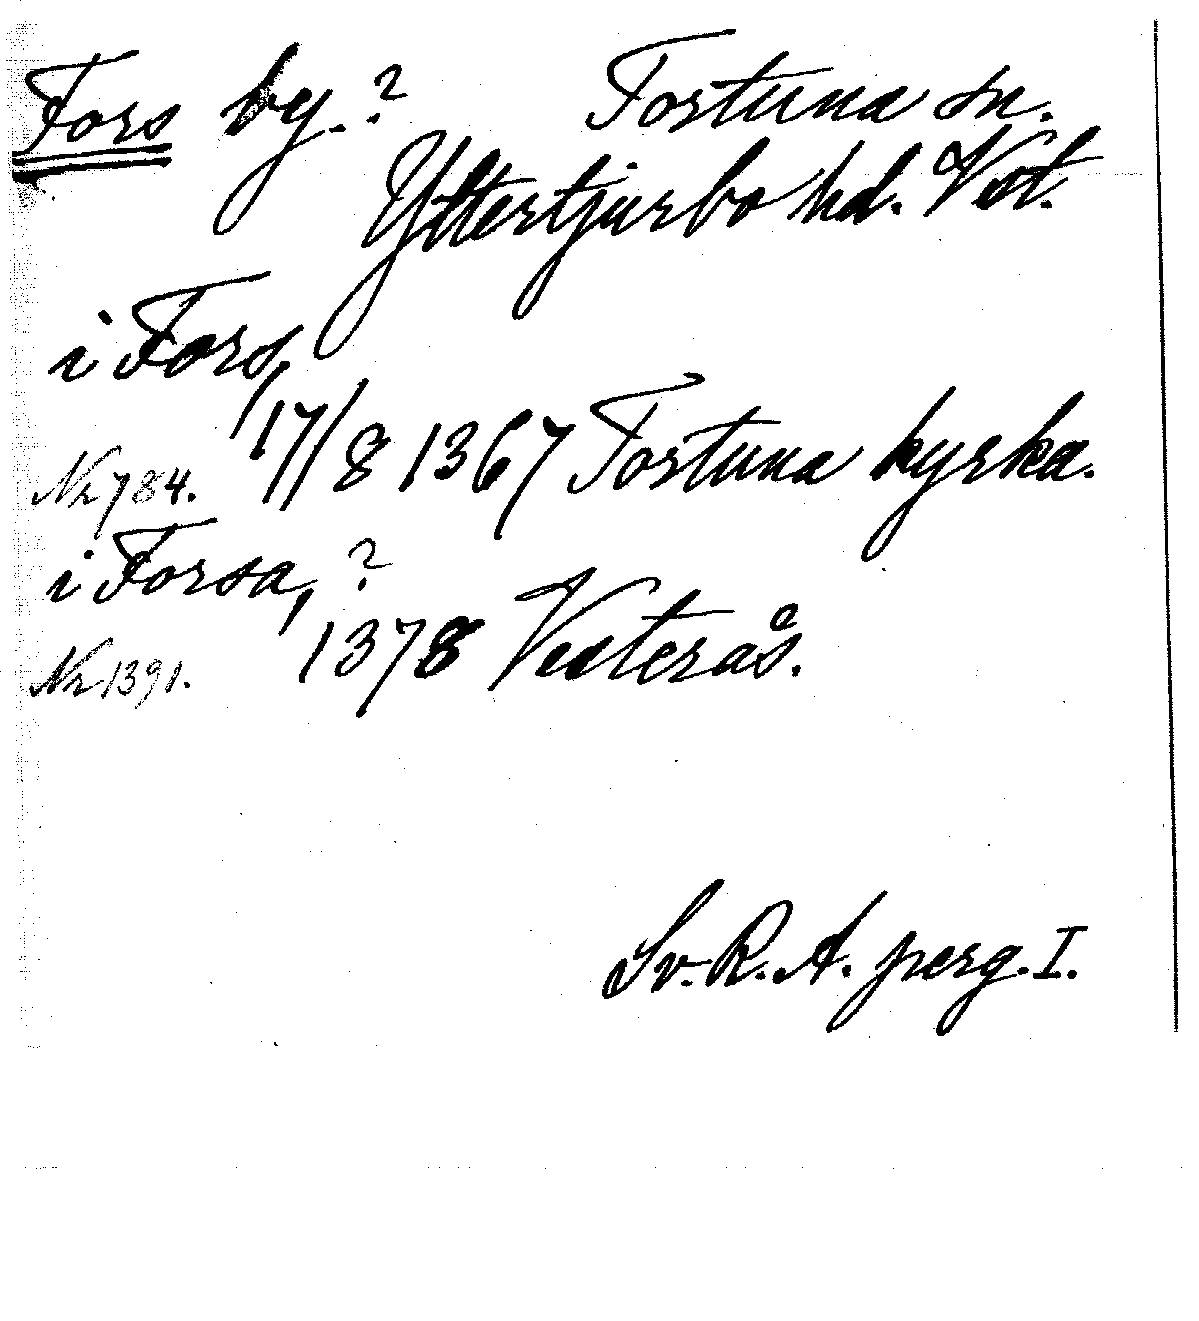 Fors by.? Tortuna sn.
Yttertjurbo hd. Vest.
i Fors,
17/8 1367 Tortuna kyrka.
Nr 784.
i Forsa, ?
1378 Vesterås.
Nr 1391.
Sv. R. A. perg. I.